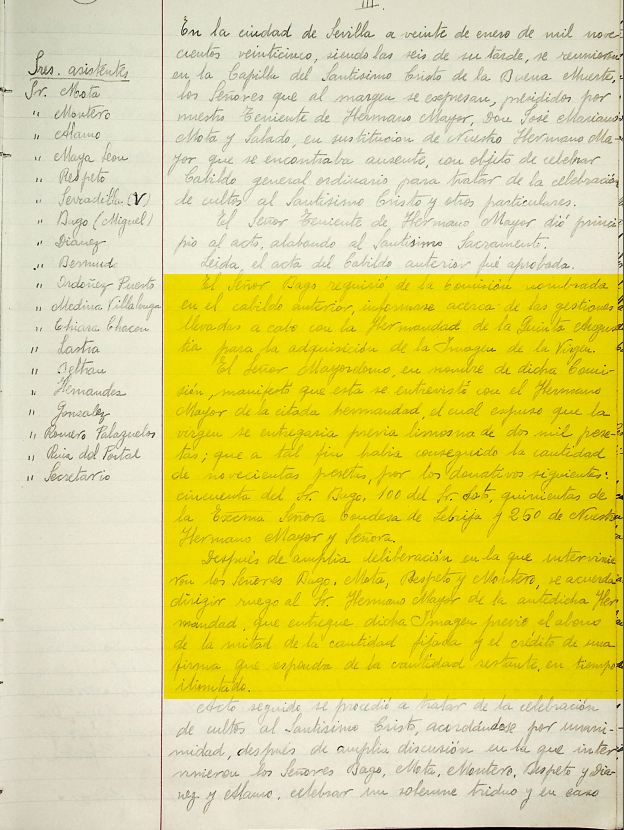 III
Sres. asistentes
Sr. Mota
" Montero
" Alamo
" Maya Leon
" Respeto
" Serradilla (V)
" Bago (Miguel)
" Dianez
" Bermudo
" Ordoñez Puerto
" Medina Villalonga
" Chiara Chacon
" Lastra
" Beltran
" Hernandez
" Gonzalez
" Romero Palazuelos
" Ruiz del Portal
" Secretario
En la ciudad de Sevilla a veinte de enero de mil nove-
cientos veinticinco, siendo las seis de su tarde, se reunieron
en la Capilla del Santisimo Cristo de la Buena Muerte,
los Señores que al margen se expresan, presididos por
nuestro Teniente de Hermano Mayor, Don José Mariano
Mota y Salado, en sustitucion de Nuestro Hermano Ma-
yor que se encontraba ausente, con objeto de celebrar
Cabildo general ordinario para tratar de la celebración
de cultos al Santisimo Cristo y otros particulares.
El Señor Teniente de Hermano Mayor dió princi-
pio al acto, alabando al Santisimo Sacramento.
Leida el acta del Cabildo anterior fué aprobada.
El Señor Bago requirió de la Comisión nombrada
en el cabildo anterior, informase acerca de las gestiones
llevadas a cabo con la Hermandad de la Quinta Angus-
tia para la adquisición de la Imagen de la Virgen.
El Señor Mayordomo, en nombre de dicha Comi-
sión, manifestó que esta se entrevistó con el Hermano
Mayor de la citada hermandad, el cual expuso que la
virgen se entregaria previa limosna de dos mil pese-
tas; que a tal fin habia conseguido la cantidad
de novecientas pesetas, por los donativos siguientes:
cincuenta del Sr. Bago, 100 del Sr. quinientas de
la Excma Señora Condesa de Lebrija y 250 de Nuestro
Hermano Mayor y Señora.
Después de amplia deliberación en la que intervinie-
ron los Señores Bago, Mota, Respeto y Montero, se acuerda
dirigir ruego al Sr. Hermano Mayor de la antedicha Her-
mandad, que entregue dicha Imagen previo el abono
de la mitad de la cantidad fijada y el crédito de una
firma que responda de la cantidad restante, en tiempo
ilimitado.
Acto seguido se procedió a tratar de la celebración
de cultos al Santisimo Cristo, acordándose por unani-
midad, después de amplia discusión en la que inter-
vinieron los Señores Bago, Mota, Montero, Respeto y Dia-
nez y Alamo, celebrar un solemne triduo y en caso